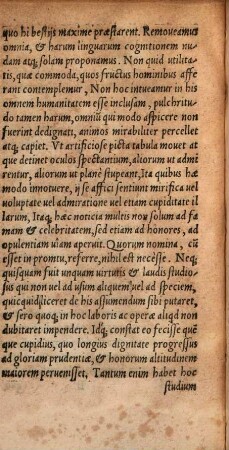 quo hi bestijs maxime præstarent. Remoueamus
omnia, & harum linguarum cognitionem nu
dam atq; solam proponamus. Non quid utilita
tis, quæ commoda, quos fructus hominibus affe
rant contemplemur, Non hoc intueamur in his
omnem humanitatem esse inclusam, pulchritu
do tamen harum, omnib qui modo aspicere non
fuerint dedignati, animos mirabiliter percellet
atq; capiet. Vt artificiose picta tabula mouet at
que detinet oculos spectantium, aliorum ut admi
rentur, aliorum ut planè stupeant, Ita quibus hæ
modo innotuere, ij se affici sentiunt mirifica uel
uoluptate uel admiratione uel etiam cupiditate il
larum, Itaq; hæc noticia multis nõ solum ad fa
mam & celebritatem, sed etiam ad honores, ad
opulentiam uiam aperuit. Quorum nomina, cũ
esset in promtu, referre, nihil est necesse. Neq;
quisquam fuit unquam uirtutis & laudis studio-
sus qui non uel ad usum aliquem uel ad speciem,
quicquid liceret de his assumendum sibi putaret,
& sero quoq; in hoc laboris ac operæ aliqd non
dubitaret impendere. Idq; constat eo fecisse quẽ
que cupidius, quo longius dignitate progressus
ad gloriam prudentiæ, & honorum altitudinem
maiorem peruenisset, Tantum enim habet hoc
studium